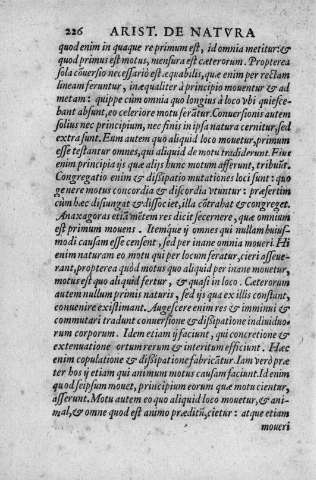 226 ARIST. DE NATVRA
quod enim in quaque re primum est, id omnia metitur: &
quod primus est motus, mensura est cæterorum. Propterea
sola cōuersio necessariò est æquabilis, quæ enim per rectam
lineam feruntur, inæqualiter à principio mouentur & ad
metam: quippe cùm omnia quo longius à loco vbi quiesce-
bant absunt, eo celeriore motu ferātur. Conuersionis autem
solius nec principium, nec finis in ipsa natura cernitur, sed
extra sunt. Eum autem quo aliquid loco mouetur, primum
esse testantur omnes, qui aliquid de motu tradiderunt. Eius
enim principia ijs quæ alijs hunc motum afferunt, tribuūt.
Congregatio enim & dissipatio mutationes loci sunt: quo
genere motus concordia & discordia vtuntur: præsertim
cùm hæc disiungat & dissociet, illa cōtrabat & congreget.
Anaxagoras etiā mētem res dicit secernere, quæ omnium
est primum mouens. Itemque ij omnes qui nullam huius-
modi causam esse censent, sed per inane omnia moueri. Hi
enim naturam eo motu qui per locum feratur, cieri asseue-
rant, propterea quòd motus quo aliquid per inane mouetur,
motus est quo aliquid fertur, & quasi in loco. Cæterorum
autem nullum primis naturis, sed ijs quæ ex illis constant,
conuenire existimant. Augescere enim res & imminui &
commutari tradunt conuersione & dissipatione indiuiduo-
rum corporum. Idem etiam ij faciunt, qui concretione &
extenuatione ortum rerum & interitum efficiunt. Hæc
enim copulatione & dissipatione fabricātur. Iam verò præ
ter hos ij etiam qui animum motus causam faciunt. Id enim
quod seipsum mouet, principium eorum quæ motu cientur,
asserunt. Motu autem eo quo aliquid loco mouetur, & ani-
mal, & omne quod est animo præditū, cietur: atque etiam
moueri